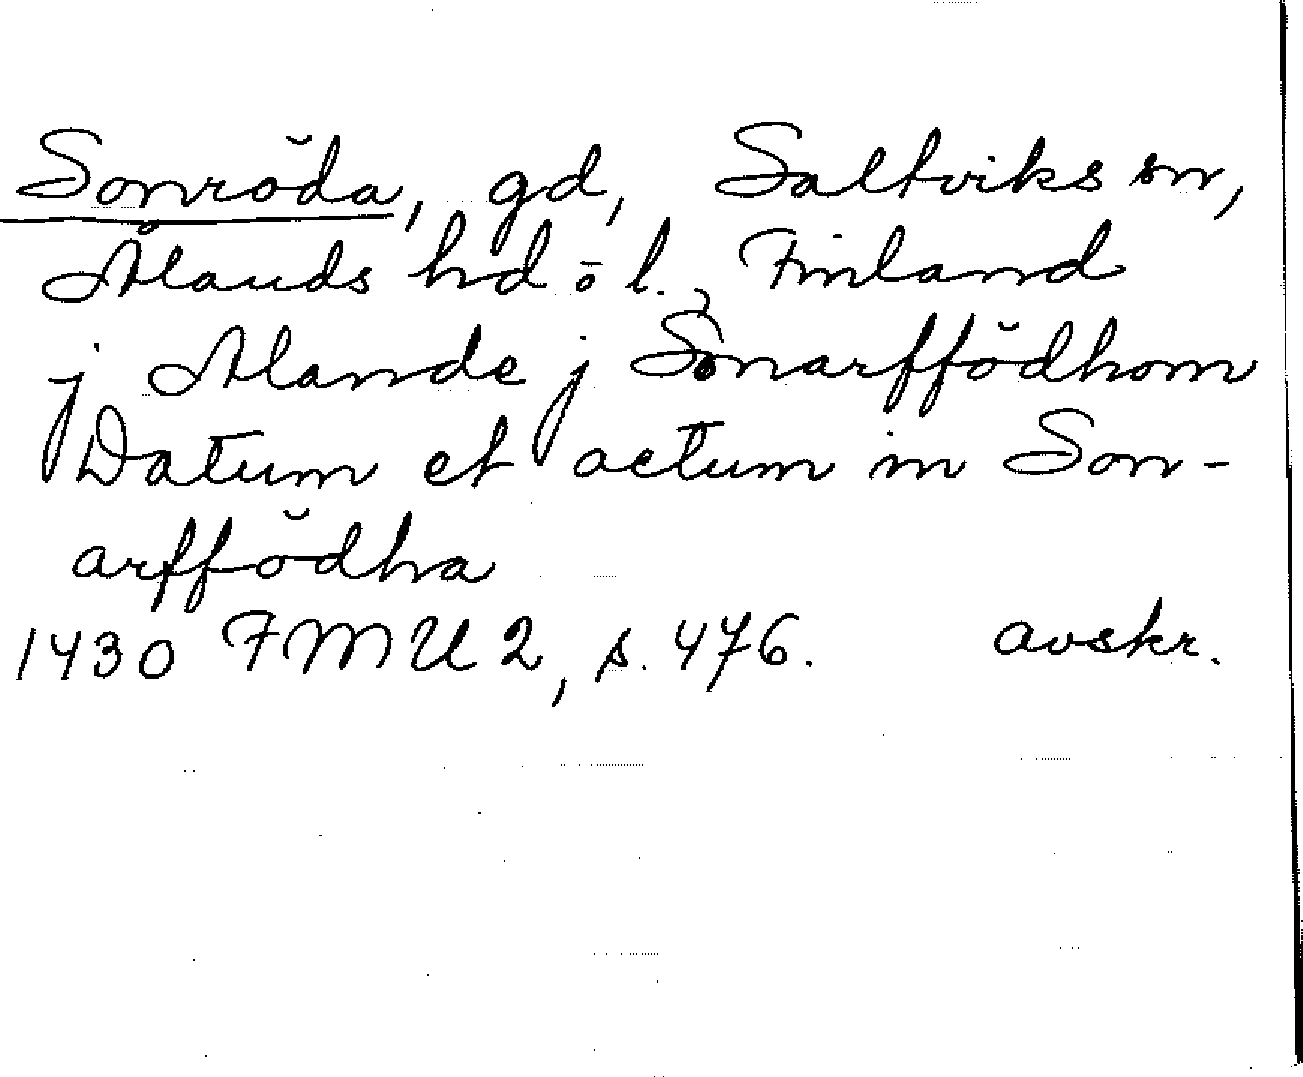 Sonröda, gd, Saltviks sn,
Ålands hd o l. Finland
j Alande j Sonarffödhom
Datum et actum in Son-
arffödha
1430 FMU 2, s. 476. avskr.